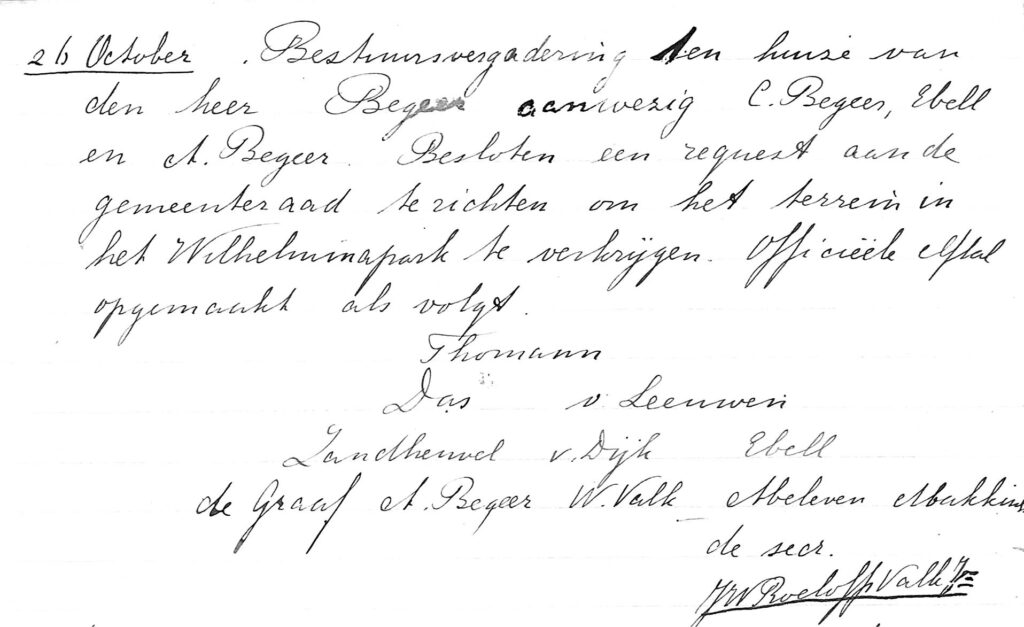 26 October. Bestuursvergadering ten huize van
den heer Begeer aanwezig C. Begeer, Ebell
en A. Begeer. Besloten een request aan de
gemeenteraad te richten om het terrein in
het Wilhelminapark te verkrijgen. Officiëele elftal
opgemaakt als volgt.
Thomann
Das v. Leeuwen
Zandheuvel v. Dijk Ebell
de Graaf A. Begeer W. Valk Abeleven
de secr.
Roeloffs Valk Jr